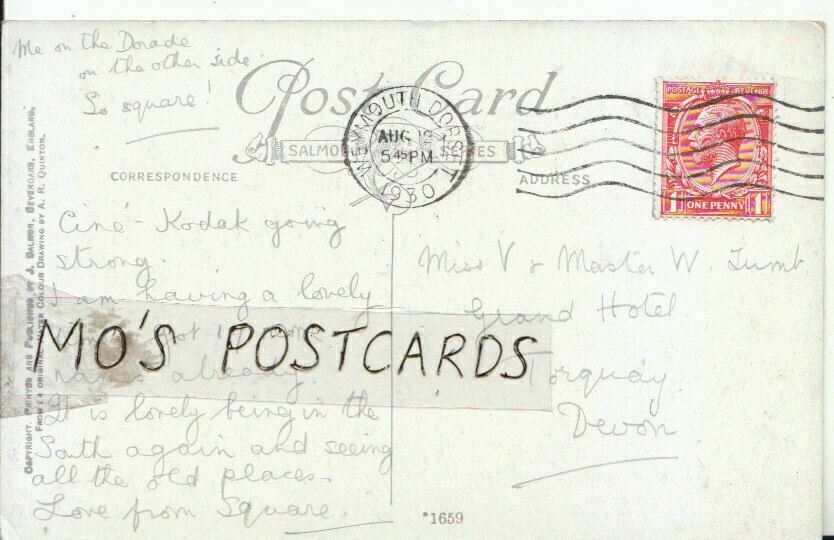 Me on the Dorade
on the other side.
So square!
Post Card
SALMON SERIES
WEYMOUTH DORSET
AUG 12
5 45 PM
1930
POSTAGE REVENUE
ONE PENNY
1 1
CORRESPONDENCE
ADDRESS
COPYRIGHT. PRINTED AND PUBLISHED BY J. SALMON, SEVENOAKS, ENGLAND.
FROM AN ORIGINAL WATER COLOUR DRAWING BY A. R. QUINTON.
Ciné-Kodak going
strong.
I am having a lovely
already.
It is lovely being in the
South again and seeing
all the old places.
Love from Square.
MO'S POSTCARDS
Miss V & Master W. Lumb.
Grand Hotel.
Torquay
Devon
*1659